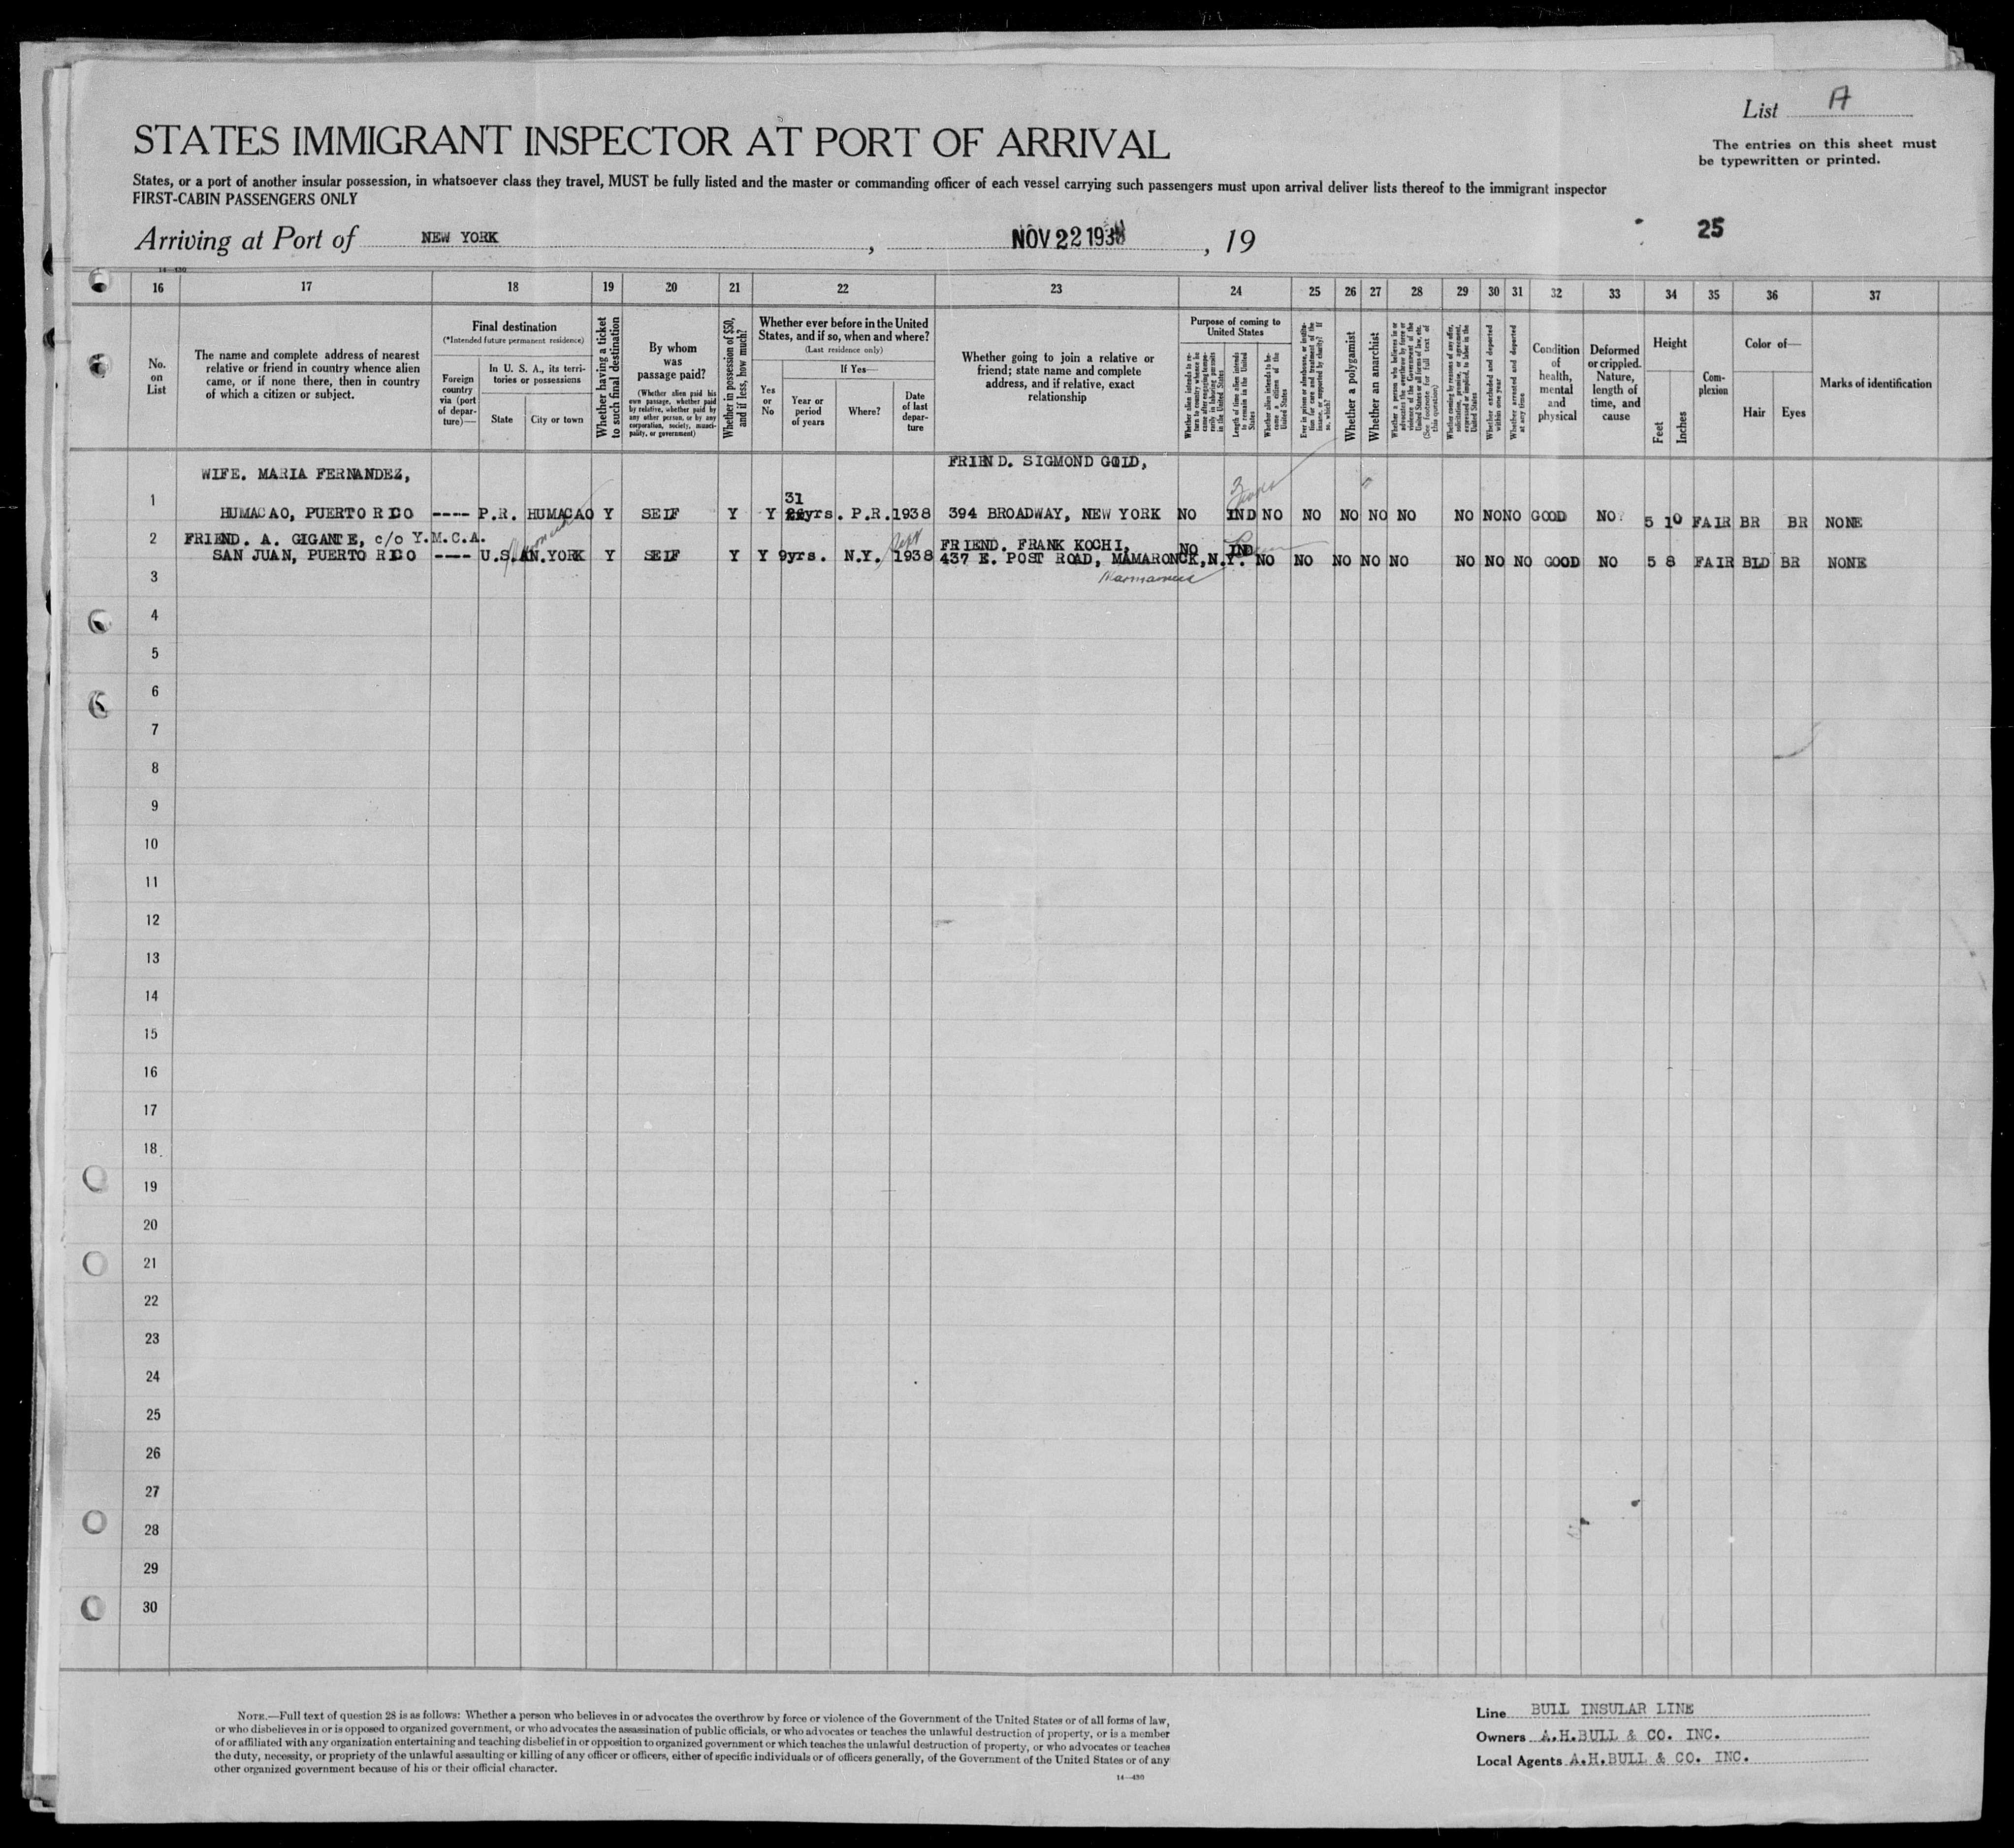 List A
STATES IMMIGRANT INSPECTOR AT PORT OF ARRIVAL
The entries on this sheet must
be typewritten or printed.
States, or a port of another insular possession, in whatsoever class they travel, MUST be fully listed and the master or commanding officer of each vessel carrying such passengers must upon arrival deliver lists thereof to the immigrant inspector
FIRST-CABIN PASSENGERS ONLY
Arriving at Port of NEW YORK, NOV 22 1938, 19
25
14—430
16 17 18 19 20 21 22 23 24 25 26 27 28 29 30 31 32 33 34 35 36 37
No.
on
List
The name and complete address of nearest
relative or friend in country whence alien
came, or if none there, then in country
of which a citizen or subject.
Final destination
(*Intended future permanent residence)
Foreign
country
via (port
of depar-
ture)—
In U. S. A., its terri-
tories or possessions
State
City or town
Whether having a ticket
to such final destination
By whom
was
passage paid?
(Whether alien paid his
own passage, whether paid
by relative, whether paid by
any other person, or by any
corporation, society, munici-
pality, or government)
Whether in possession of $50,
and if less, how much?
Whether ever before in the United
States, and if so, when and where?
(Last residence only)
Yes
or
No
If Yes—
Year or
period
of years
Where?
Date
of last
depar-
ture
Whether going to join a relative or
friend; state name and complete
address, and if relative, exact
relationship
Purpose of coming to
United States
Whether alien intends to re-
turn to country whence he
came after engaging tempo-
rarily in laboring pursuits
in the United States
Length of time alien intends
to remain in the United
States
Whether alien intends to be-
come a citizen of the
United States
Ever in prison or almshouse, or institu-
tion for care and treatment of the
insane, or supported by charity? If
so, which?
Whether a polygamist
Whether an anarchist
Whether a person who believes in or
advocates the overthrow by force or
violence of the Government of the
United States or all forms of law, etc.
(See footnote for full text of
this question)
Whether coming by reasons of any offer,
solicitation, promise, or agreement,
expressed or implied, to labor in the
United States
Whether excluded and deported
within one year
Whether arrested and deported
at any time
Condition
of
health,
mental
and
physical
Deformed
or crippled.
Nature,
length of
time, and
cause
Height
Feet
Inches
Com-
plexion
Color of—
Hair
Eyes
Marks of identification
WIFE. MARIA FERNANDEZ,
FRIEND. SIGMOND GOLD,
31
1 HUMACAO, PUERTO RICO ---- P.R. HUMACAO Y SELF Y Y yrs. P.R. 1938 394 BROADWAY, NEW YORK NO IND NO NO NO NO NO NO NO NO GOOD NO 5 10 FAIR BR BR NONE
2 FRIEND. A. GIGANTE, c/o Y.M.C.A.
FRIEND. FRANK KOCHI,
SAN JUAN, PUERTO RICO ---- U.S.A. N.YORK Y SELF Y Y 9yrs. N.Y. Sept 1938 437 E. POST ROAD, MAMARONCK, N.Y. NO IND NO NO NO NO NO NO NO NO GOOD NO 5 8 FAIR BLD BR NONE
3
4
5
6
7
8
9
10
11
12
13
14
15
16
17
18
19
20
21
22
23
24
25
26
27
28
29
30
NOTE.—Full text of question 28 is as follows: Whether a person who believes in or advocates the overthrow by force or violence of the Government of the United States or of all forms of law,
or who disbelieves in or is opposed to organized government, or who advocates the assassination of public officials, or who advocates or teaches the unlawful destruction of property, or is a member
of or affiliated with any organization entertaining and teaching disbelief in or opposition to organized government or which teaches the unlawful destruction of property, or who advocates or teaches
the duty, necessity, or propriety of the unlawful assaulting or killing of any officer or officers, either of specific individuals or of officers generally, of the Government of the United States or of any
other organized government because of his or their official character.
14—430
Line BULL INSULAR LINE
Owners A.H.BULL & CO. INC.
Local Agents A.H.BULL & CO. INC.